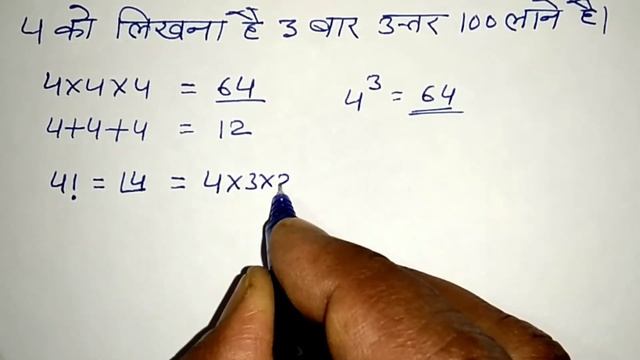 4 को लिखना है 3 बार उत्तर 100 लाने है।
4×4×4 = 64
4³ = 64
4+4+4 = 12
4! = ⌊4 = 4×3×2